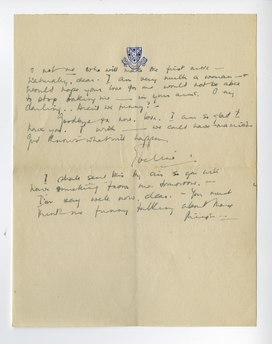 I not me, who will make the first move —
Naturally, dear. I am very much a woman — I
would hope your love for me would not be able
to stop taking me — in your arms. O my
darling.. Aren't we funny?
Goodbye for now, love. I am so glad I
have you. I wish — we could have
God knows what will happen.
I shall send this by air so you will
have something from me tomorrow. —
I'm very well now, dear. — You must
think me funny talking about